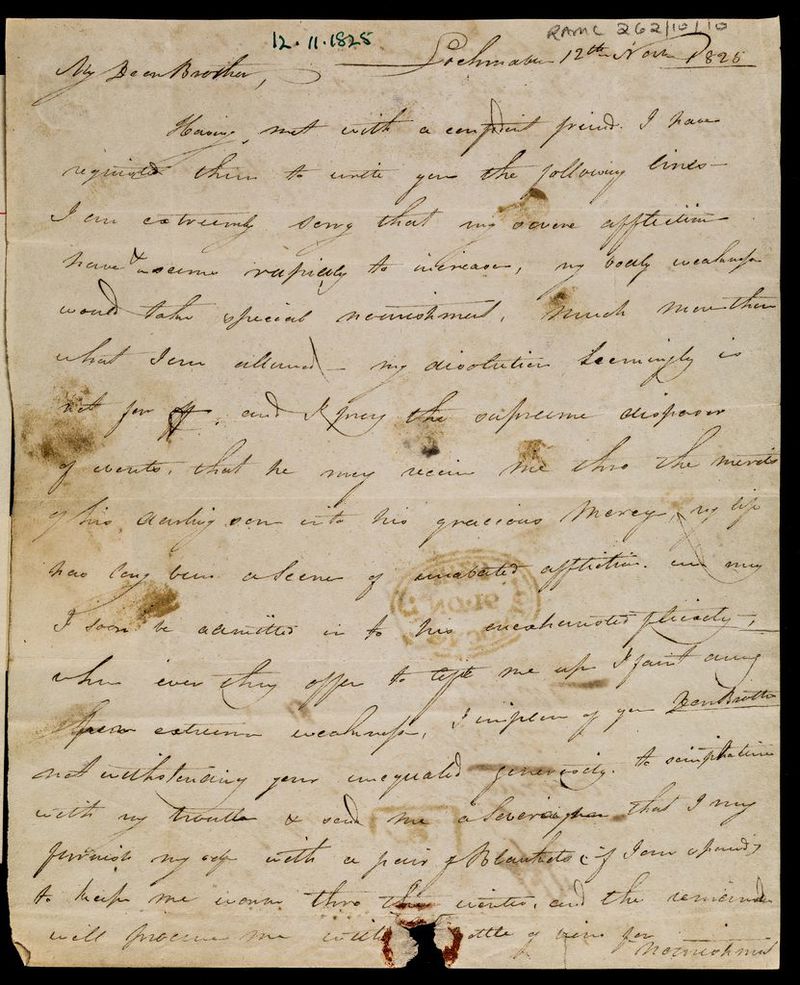 12.11.1825
RAMC 262/10/10
Lochmaben 12th Novr 1825
My Dear Brother,
Having met with a confident friend. I have
requested them to write you the following lines—
I am extremely sorry that my severe affliction
have & seems rapidly to increase, my body weakness
would take special nourishment, much more than
what I am allowed — my disolution seemingly is
not far off, and I pray the supreme disposer
of events, that he may receive me thro the merits
of his darling son into his gracious Mercy, my life
has long been a Scene of unabated affliction. and may
I soon be admitted in to his unexhausted felicity,
when ever they offer to lift me up I faint away
from extreem weakness, I implore of you Dear Brother
notwithstanding your unequaled generosity. to simpathise
with my trouble & send me a Sovereign that I may
furnish my self with a pair of Blankets (if I am spared)
to keep me warm thro the winter, and the remainder
will procure me with bottle of wine for
nourishment